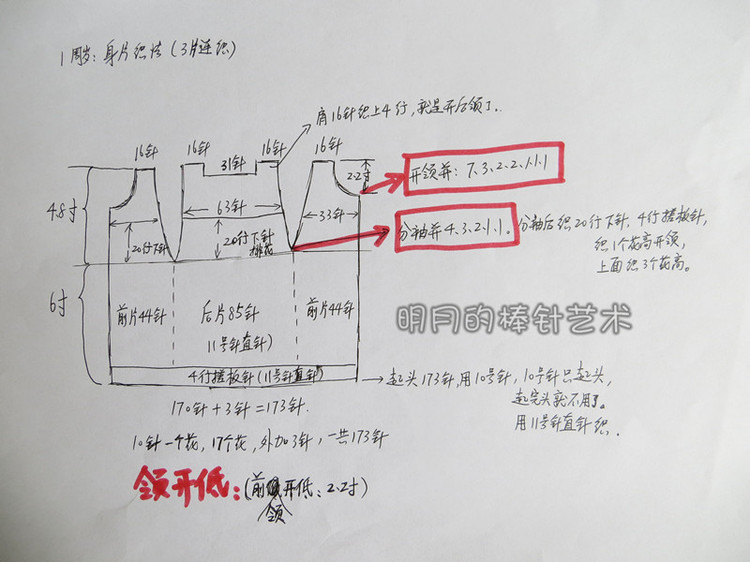 1周岁：身片织法（3片连织）
肩16针织上4行，就是开后领了．
16针
16针
31针
16针
16针
2.2寸
开领并：7、3、2、2、1、1、1
4.8寸
63针
33针
20行下针
20行下针
排花
分袖并4、3、2、1、1。
分袖后织20行下针，4行搓板针，
织1个花高开领，
上面织3个花高。
6寸
前片44针
后片85针
前片44针
(11号针直针)
明月的棒针艺术
4行搓板针(11号针直针)
起头173针，用10号针，10号针只起头，
起完头就不用了。
用11号针直针织．
170针+3针=173针．
10针一个花，17个花，外加3针，一共173针
领开低：(前领开低：2.2寸)